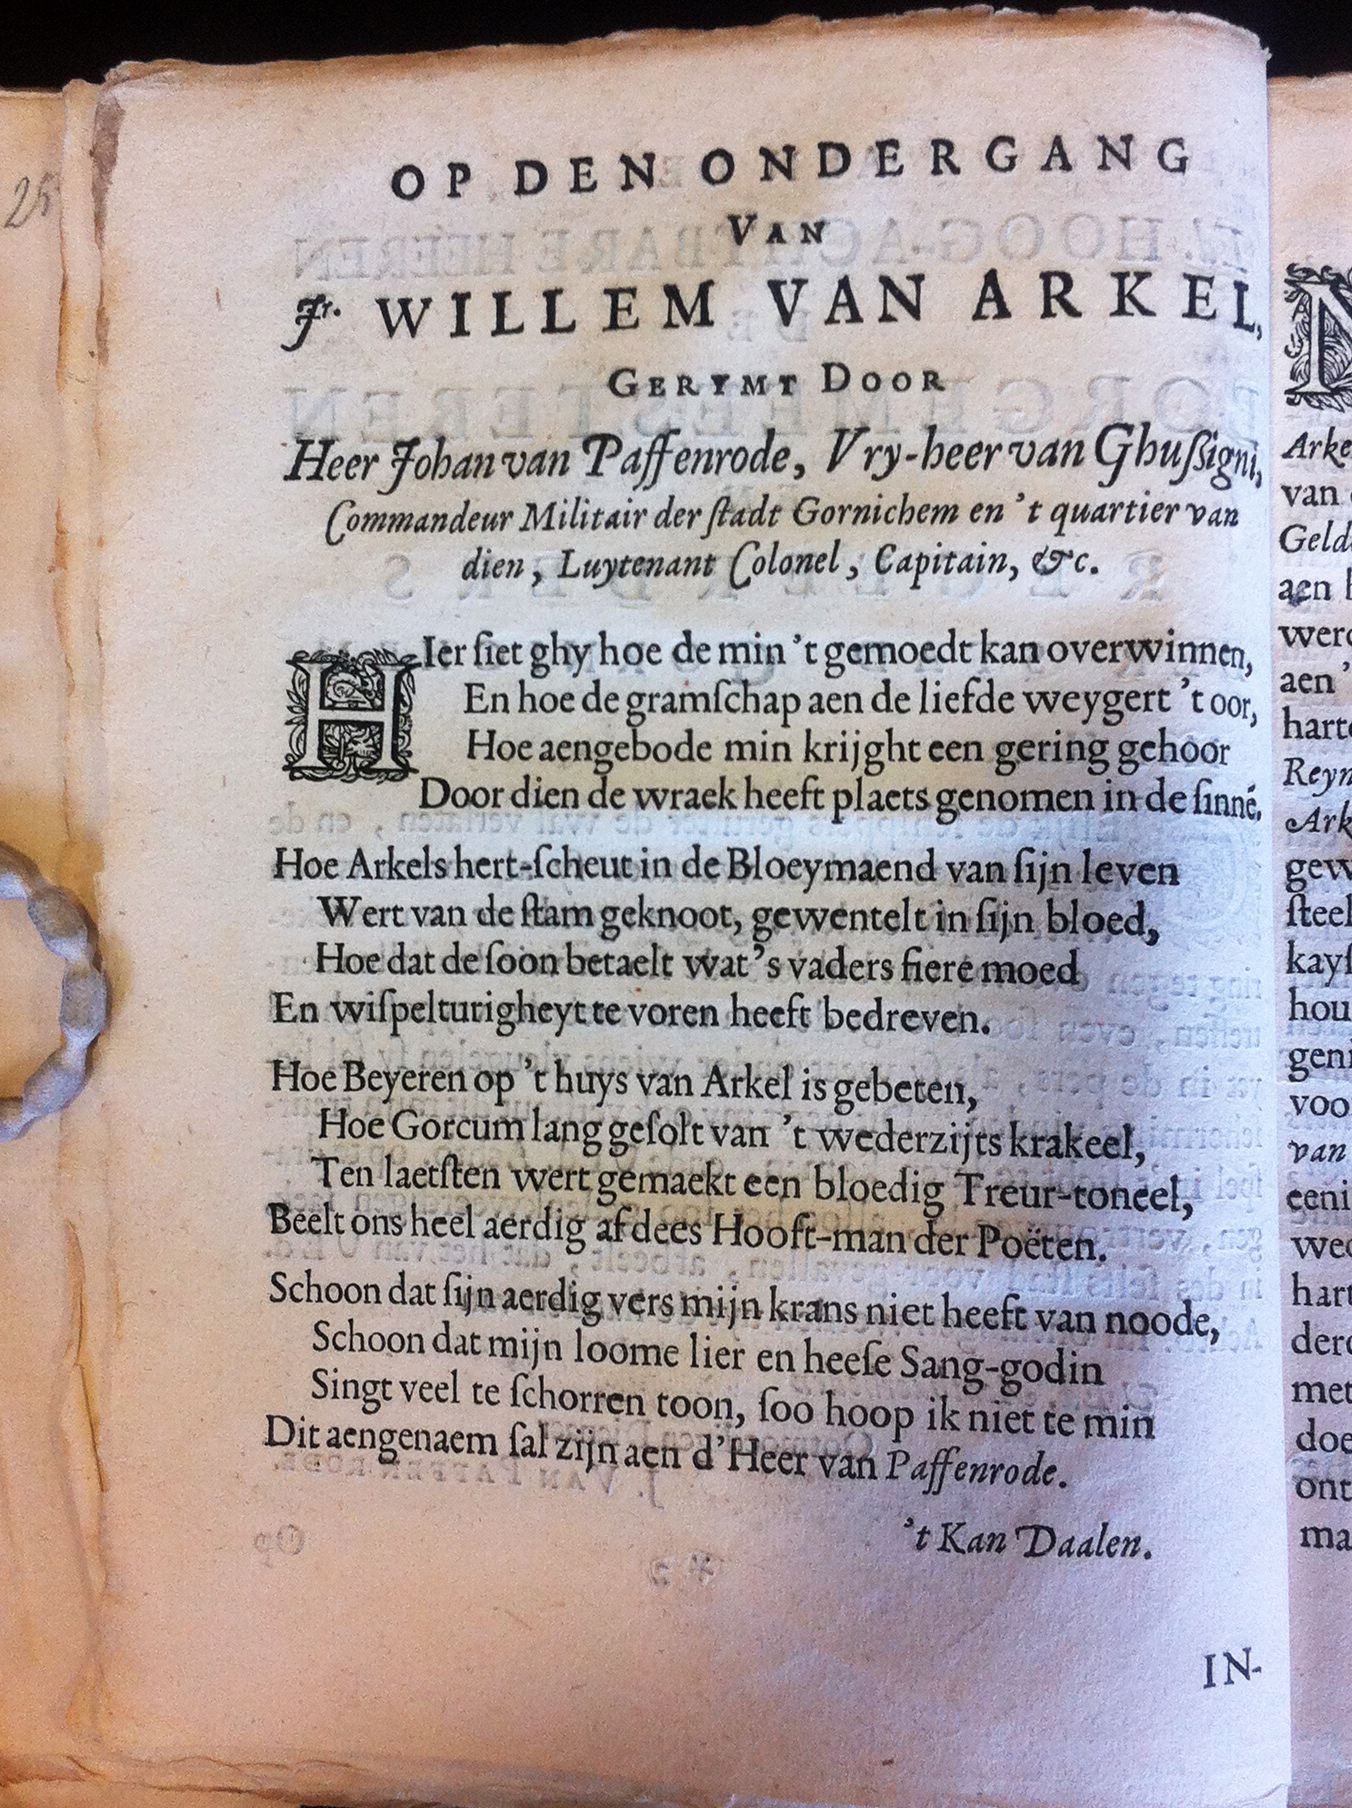 25
OP DEN ONDERGANG
VAN
Jr. WILLEM VAN ARKEL,
GERYMT DOOR
Heer Johan van Paffenrode, Vry-heer van Ghuſsigni,
Commandeur Militair der ſtadt Gornichem en 't quartier van
dien, Luytenant Colonel, Capitain, &c.
HIer ſiet ghy hoe de min 't gemoedt kan overwinnen,
En hoe de gramſchap aen de liefde weygert 't oor,
Hoe aengebode min krijght een gering gehoor
Door dien de wraek heeft plaets genomen in de ſinné.
Hoe Arkels hert-ſcheut in de Bloeymaend van ſijn leven
Wert van de ſtam geknoot, gewentelt in ſijn bloed,
Hoe dat de ſoon betaelt wat's vaders fiere moed
En wiſpelturigheyt te voren heeft bedreven.
Hoe Beyeren op 't huys van Arkel is gebeten,
Hoe Gorcum lang geſolt van 't wederzijts krakeel,
Ten laetſten wert gemaekt een bloedig Treur-toneel,
Beelt ons heel aerdig af dees Hooft-man der Poëten.
Schoon dat ſijn aerdig vers mijn krans niet heeft van noode,
Schoon dat mijn loome lier en heeſe Sang-godin
Singt veel te ſchorren toon, ſoo hoop ik niet te min
Dit aengenaem ſal zijn aen d'Heer van Paffenrode.
't Kan Daalen.
IN-
Arke
van
Geld
aen
werd
aen
hart
Reyn
Ark
gew
ſteel
kayſ
hou
geni
voo
van
eeni
wed
hart
derd
met
doe
ont
ma